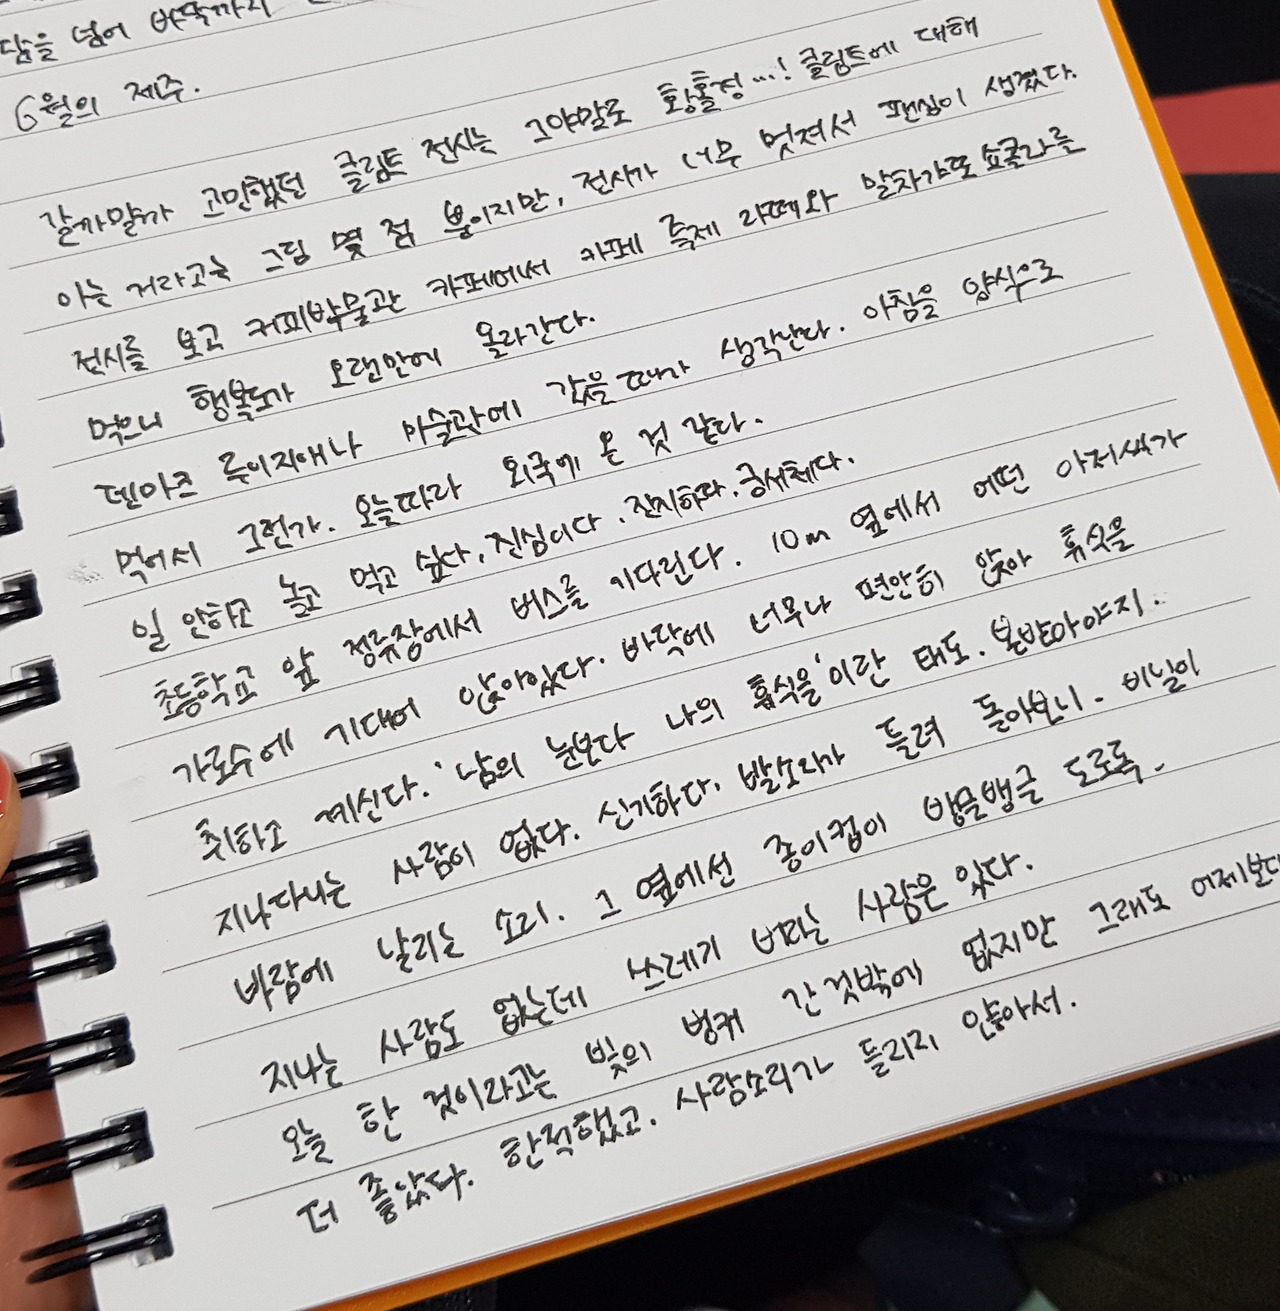 담을 넘어 바닥까지
6월의 제주.
갈까말까 고민했던 클림트 전시는 그야말로 황홀경...! 클림트에 대해
아는 거라고는 그림 몇 점 뿐이지만, 전시가 너무 멋져서 팬심이 생겼다.
전시를 보고 커피박물관 카페에서 카페 쥬제 라떼와 말차갸또쇼콜라를
먹으니 행복도가 오랜만에 올라간다.
덴마크 루이지애나 미술관에 갔을때가 생각난다. 아침을 양식으로
먹어서 그런가. 오늘따라 외국에 온 것 같다.
일 안하고 놀고 먹고 싶다, 진심이다. 진지하다. 궁서체다.
초등학교 앞 정류장에서 버스를 기다린다. 10m 옆에서 어떤 아저씨가
가로수에 기대어 앉아있다. 바닥에 너무나 편안히 앉아 휴식을
취하고 계신다. '남의 눈보다 나의 휴식을'이란 태도. 본받아야지.
지나다니는 사람이 없다. 신기하다. 발소리가 들려 돌아보니. 비닐이
바람에 날리는 소리. 그 옆에선 종이컵이 뱅글뱅글 도로록.
지나는 사람도 없는데 쓰레기 버리는 사람은 있다.
오늘 한 것이라고는 빛의 벙커 간 것밖에 없지만 그래도 어제보다
더 좋았다. 한적했고. 사람소리가 들리지 않아서.